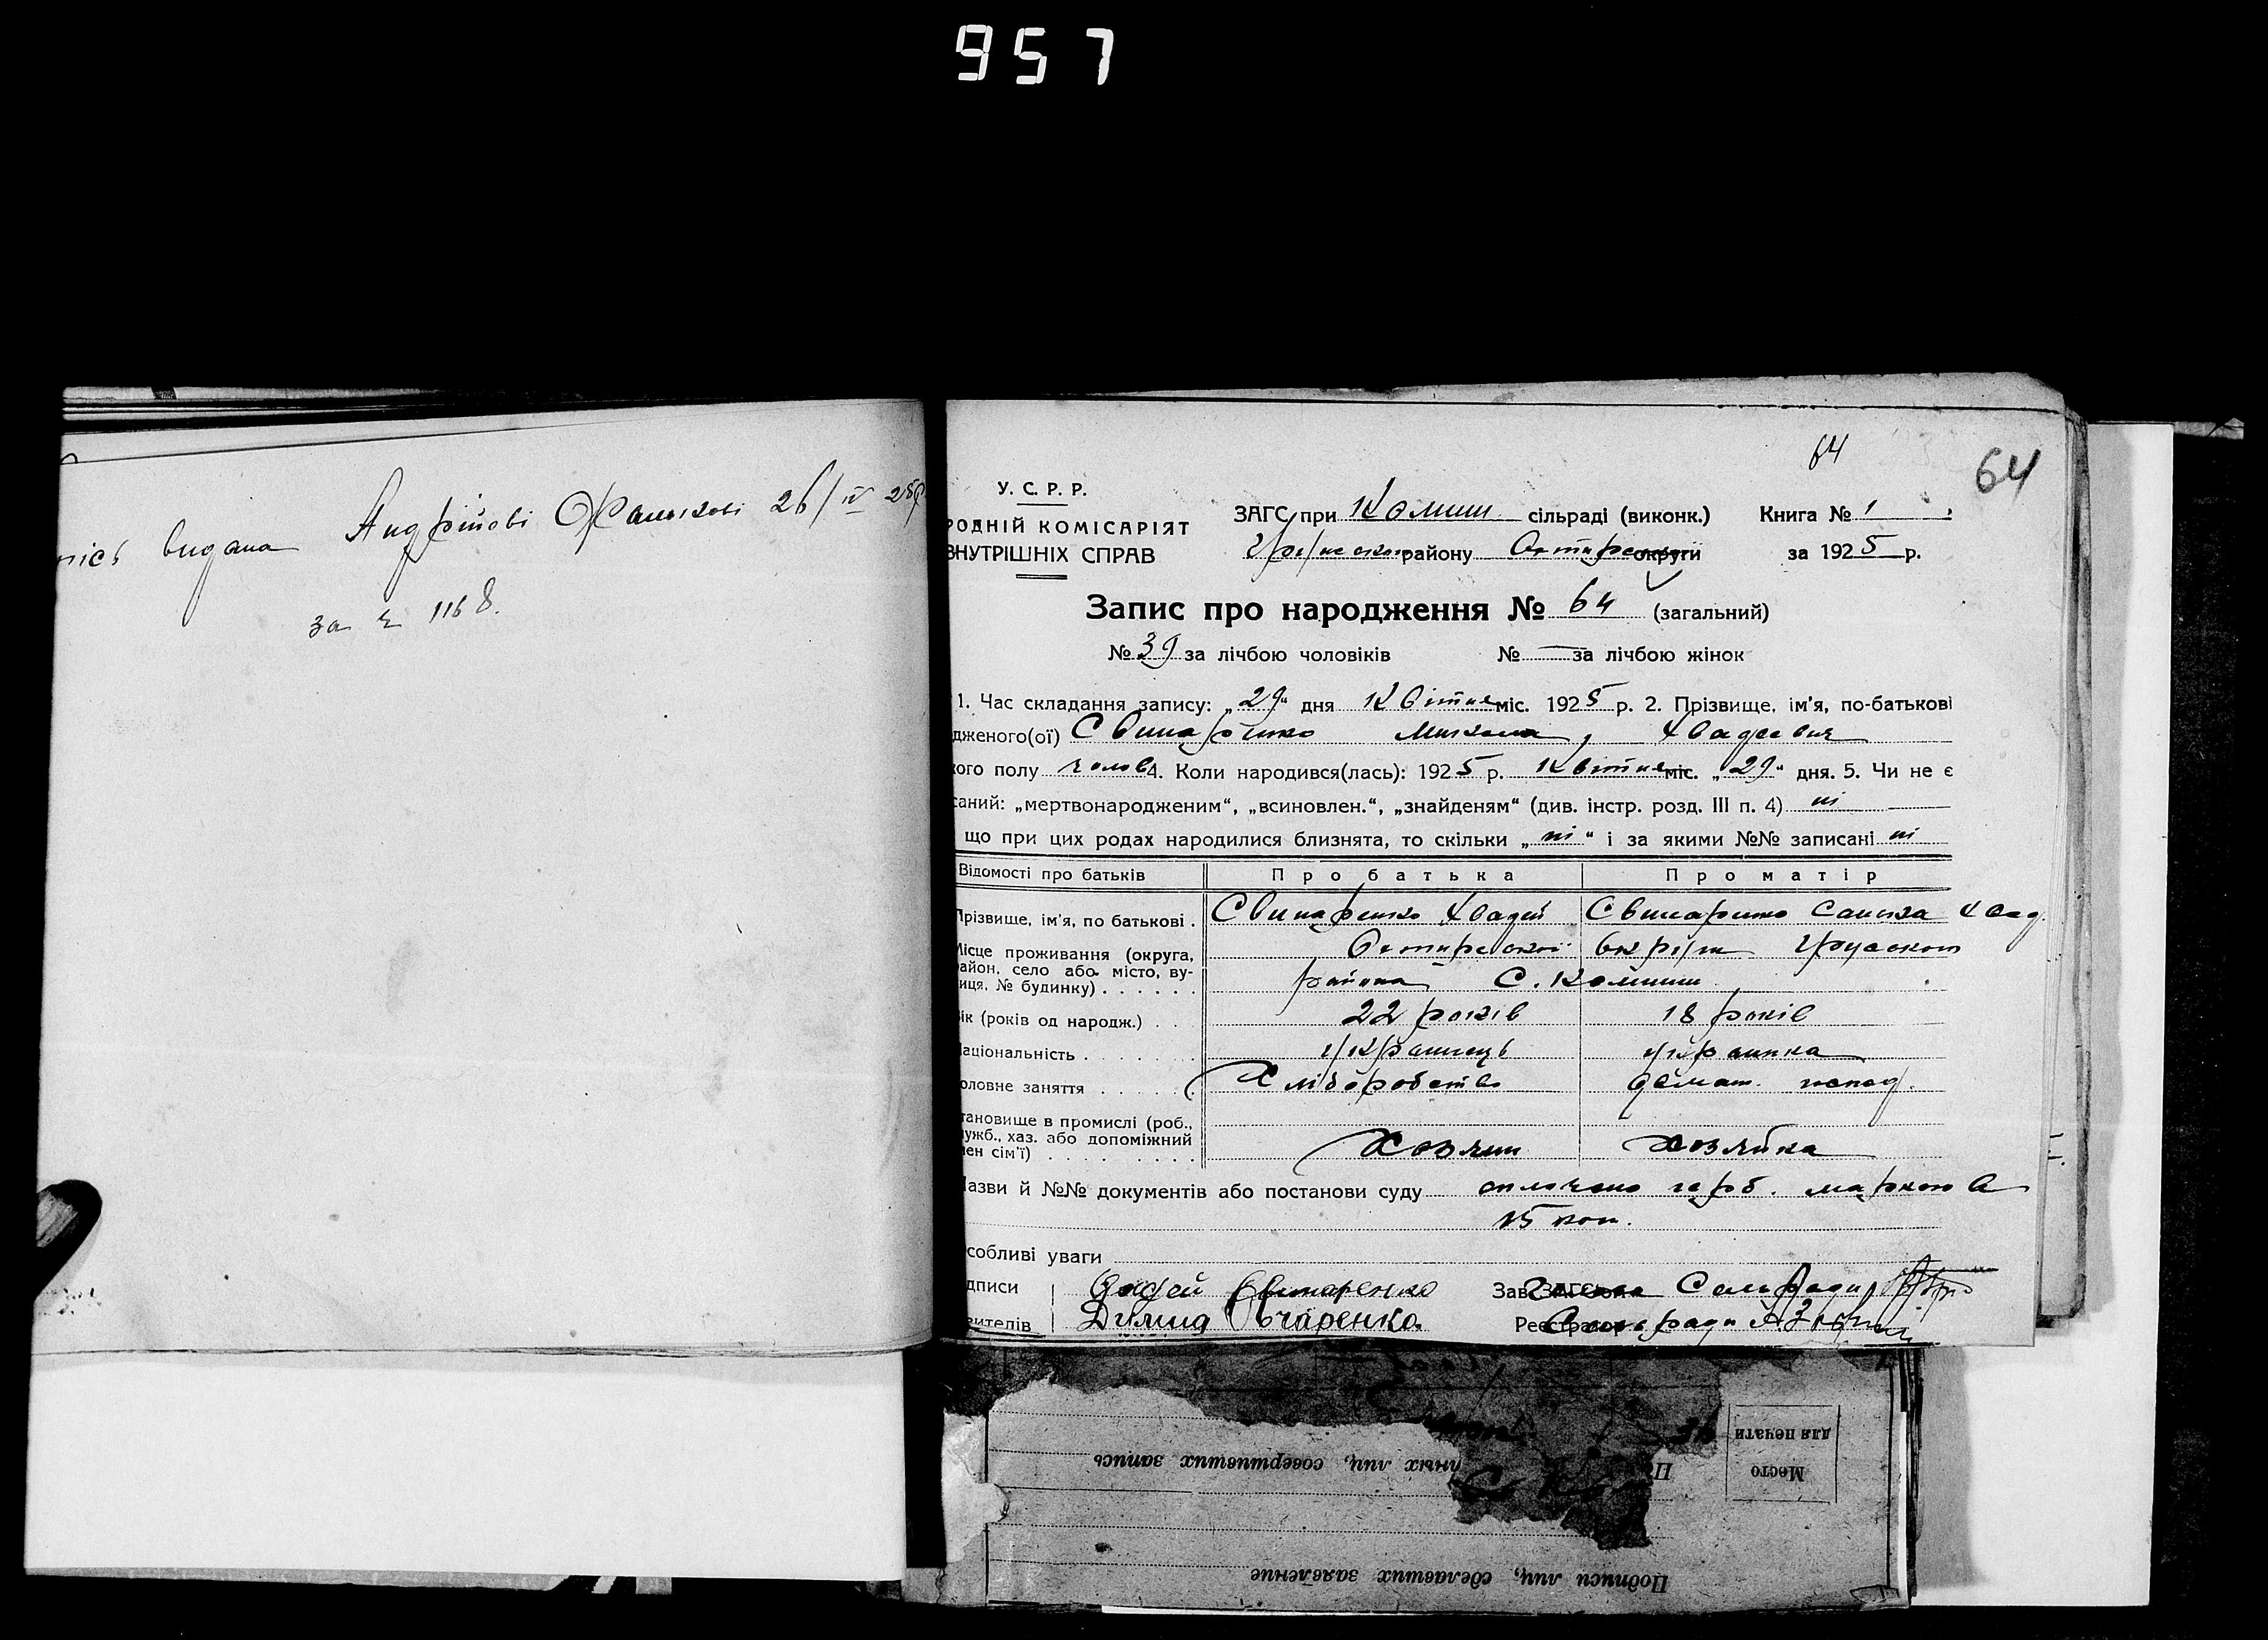 957
видана Андрійові 26/IV 25р
за № 1168.
64
64
У. С. Р. Р.
РОДНІЙ КОМІСАРІЯТ
ВНУТРІШНІХ СПРАВ
ЗАГС при Комиш сільраді (виконк.) Книга № 1
району округи за 1925 р.
Запис про народження № 64 (загальний)
№ 39 за лічбою чоловіків № — за лічбою жінок
1. Час складання запису: „29“ дня Квітня міс. 1925 р. 2. Прізвище, ім’я, по-батькові
дженого(ої) Свинаренко Микола
ого полу чолов 4. Коли народився(лась): 1925 р. Квітня міс. „29“ дня. 5. Чи не є
саний: „мертвонародженим“, „всиновлен.“, „знайденям“ (див. інстр. розд. III п. 4) ні
що при цих родах народилися близнята, то скільки „ні“ і за якими №№ записані ні
Відомості про батьків Про батька Про матір
Прізвище, ім’я, по батькові . Свинаренко Свинаренко
Місце проживання (округа,
район, село або місто, ву-
лиця, № будинку) . . . . . . района С. Комиши
ік (років од народж.) . . 22 років 18 років
Національність . . . . . . . українець українка
оловне заняття . . . . . Хліборобство домаш. господ.
тановище в промислі (роб.,
ужб., хаз. або допоміжний
лен сім’ї) . . . . . . . . . Хозяин хозяйка
Назви й №№ документів або постанови суду оплочено герб. маркою в
15 коп.
собливі уваги
дписи Свинаренко Зав. ЗАГСом Сельради
вителів Демид Овчаренко. Реєстратор
Место
для печати
лных лиц, совершивших запись
Подписи лиц, сделавших заявление